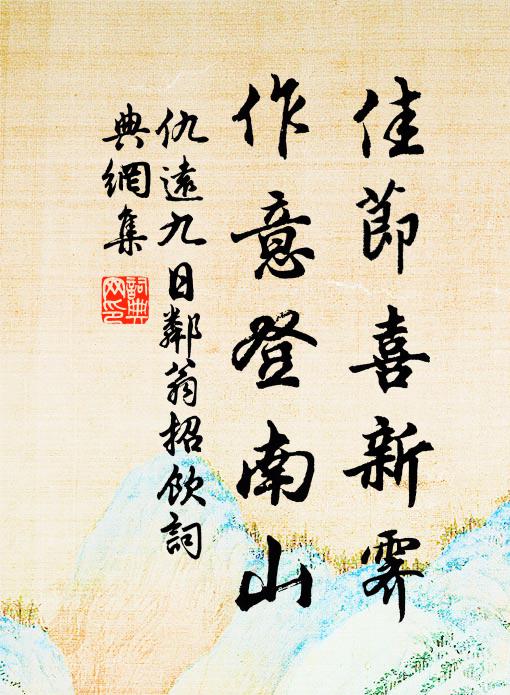 佳節喜新霽
作意登南山
仇遠九日鄰翁招飲詞
典網集
詞典網印